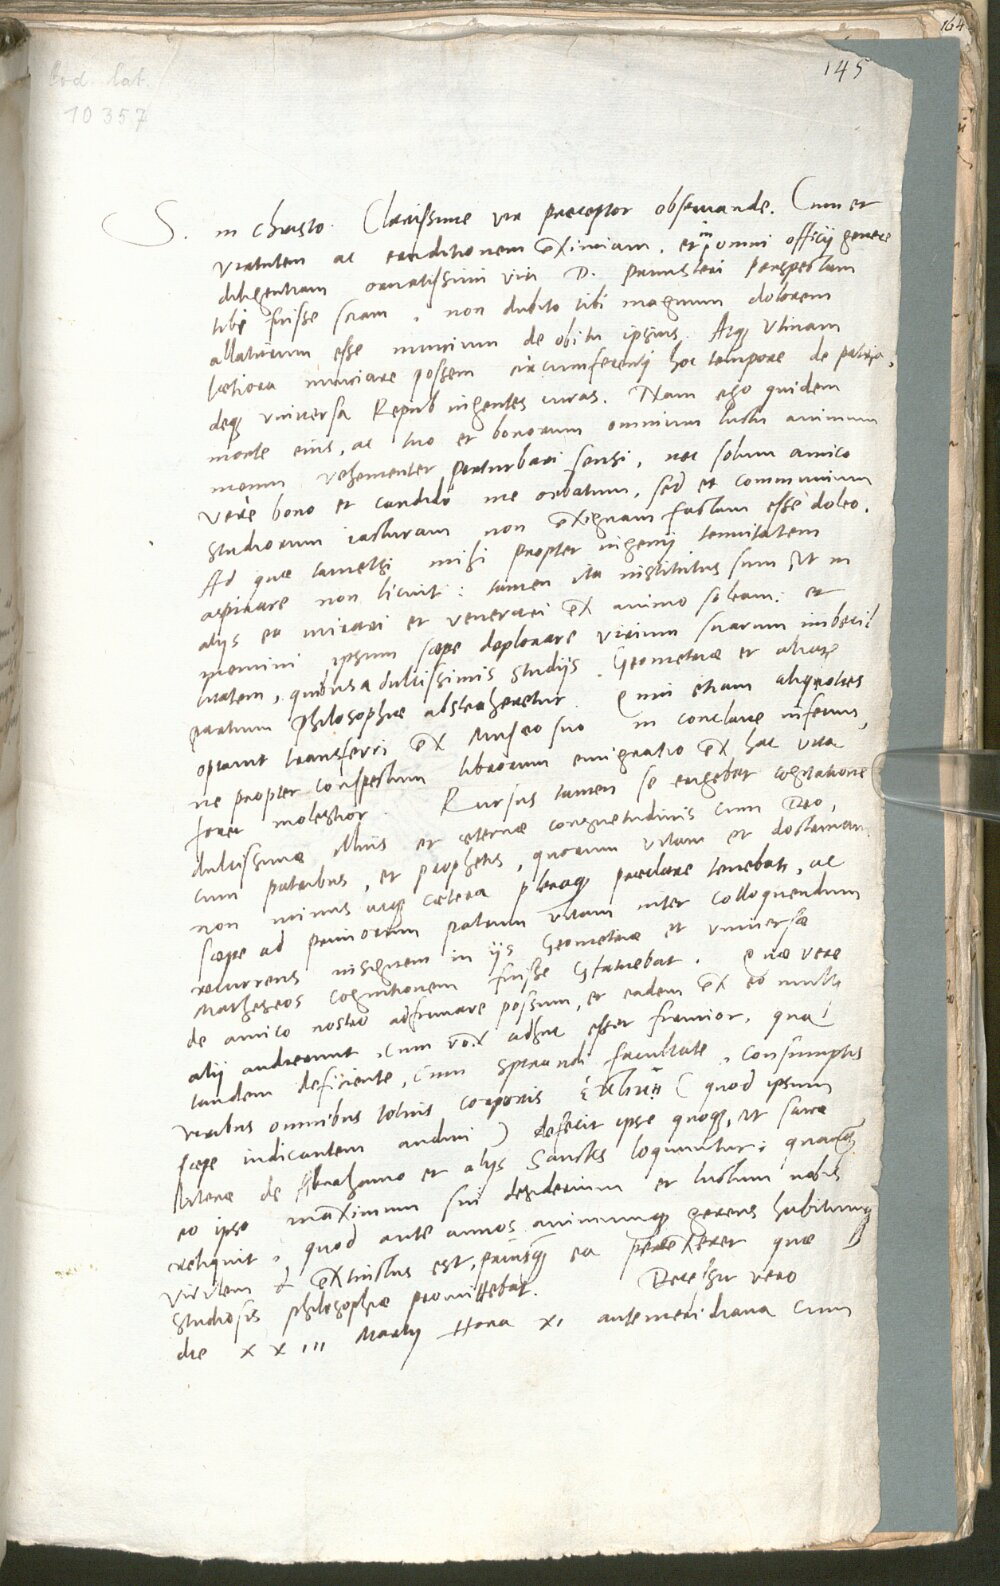 164
145
Cod. lat.
10357
S. in Christo. Clarissime vir praeceptor observande. Cum et
virtutem ac eruditionem eximiam, et in omni officij genere
diligentiam ornatissimi viri D. perspectam
tibi fuisse sciam, non dubito tibi magnum dolorem
allaturum esse nuncium de obitu ipsius. Atq; utinam
laetiora nunciare possem circumferenti hoc tempore de patria,
deq; universa Repub ingentes curas. Nam ego quidem
morte eius, ac tuo et bonorum omnium luctu animum
meum vehementer perturbari sensi, nec solum amico
vere bono et candido me orbatum, sed et communium
studiorum iacturam non exiguam factam esse doleo.
Ad quae tametsi mihi propter ingenij tenuitatem
aspirare non licuit: tamen ita institutus sum ut in
alijs ea mirari et venerari ex animo soleam: et
memini ipsum saepe deplorare virium suarum imbecil
litatem, quibus a dulcissimis studijs Geometriae et aliarum
partium Philosophiae abstraheretur. Qui etiam aliquoties
optavit transferri ex Musaeo suo in conclave inferius,
ne propter conspectum librorum emigratio ex hac vita
foret molestior. Rursus tamen se erigebat cogitatione
dulcissimae illius et aeternae consuetudinis cum Deo,
cum patribus, et prophetis, quorum vitam et doctrinam
non minus atq; caetera pleraq; praeclare tenebat, ac
saepe ad primorum patrum vitam inter colloquendum
recurrens insignem in ijs Geometriae et universae
Matheseos cognitionem fuisse statuebat. Quae vere
de amico nostro adfirmare possum, et eadem ex eo multi
alij audierunt, cum vox adhuc esset firmior, qua
tandem deficiente, cum spirandi facultate, consumptis
viribus omnibus totius corporis (quod ipsum
saepe indicantem audivi) defecit ipse quoq;, ut sacrae
literae de Abrahamo et alijs Sanctis loquuntur: quamq;
eo ipso maximum sui desiderium et luctum nobis
reliquit, quod ante annos animumq; gerens habitumq;
virilem extinctus est, priusq; ea perfexeret quae
studiosis philosophiae promittebat. Decessit vero
die XXIII Martij Hora XI antemeridiana cum